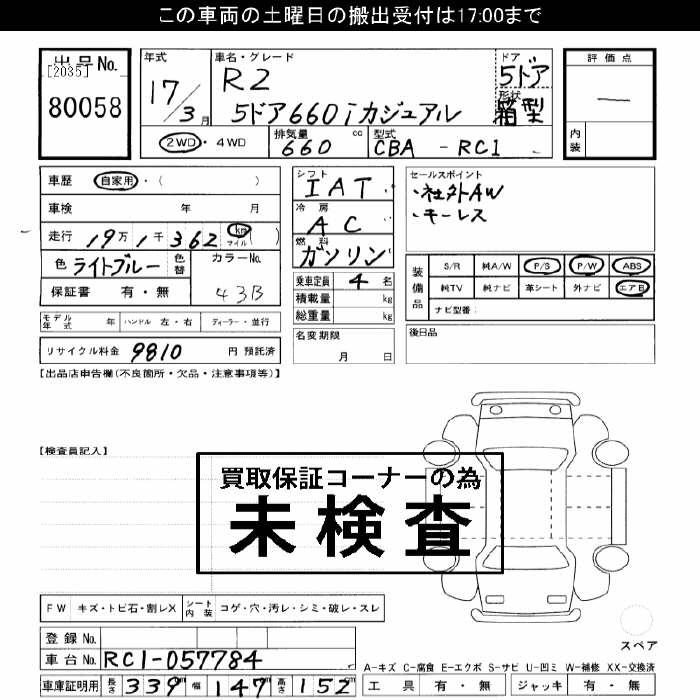 この車両の土曜日の搬出受付は17:00まで
出品No.
[2035]
80058
年式
17/3月
車名・グレード
R2
5ドア660iカジュアル
ドア
5ドア
形状
箱型
評価点
―
内装
2WD・4WD
排気量
660 cc
型式
CBA - RC1
車歴 自家用・( )
車検 年 月
走行 19万1千362 km マイル ( )
色 ライトブルー 色替
カラーNo.
43B
保証書 有・無
シフト
IAT
冷房
AC
燃料
ガソリン
乗車定員 4 名
積載量 kg
総重量 kg
セールスポイント
・社外AW
・キーレス
装備品
S/R 純A/W P/S P/W ABS
純TV 純ナビ 革シート 外ナビ エアB
ナビ型番:
モデル年式 年 ハンドル 左・右 ディーラー・並行
名変期限
月 日
後日品
リサイクル料金 9810 円 預託済
【出品店申告欄(不良箇所・欠品・注意事項等)】
【検査員記入】
買取保証コーナーの為
未検査
FW キズ・トビ石・割レX シート内装 コゲ・穴・汚レ・シミ・破レ・スレ
スペア
登録No.
車台No. RC1-057784
A-キズ C-腐食 E-エクボ S-サビ U-凹ミ W-補修 XX-交換済
車庫証明用 長さ 339 cm 幅 147 cm 高さ 152 cm
工具 有・無 ジャッキ 有・無